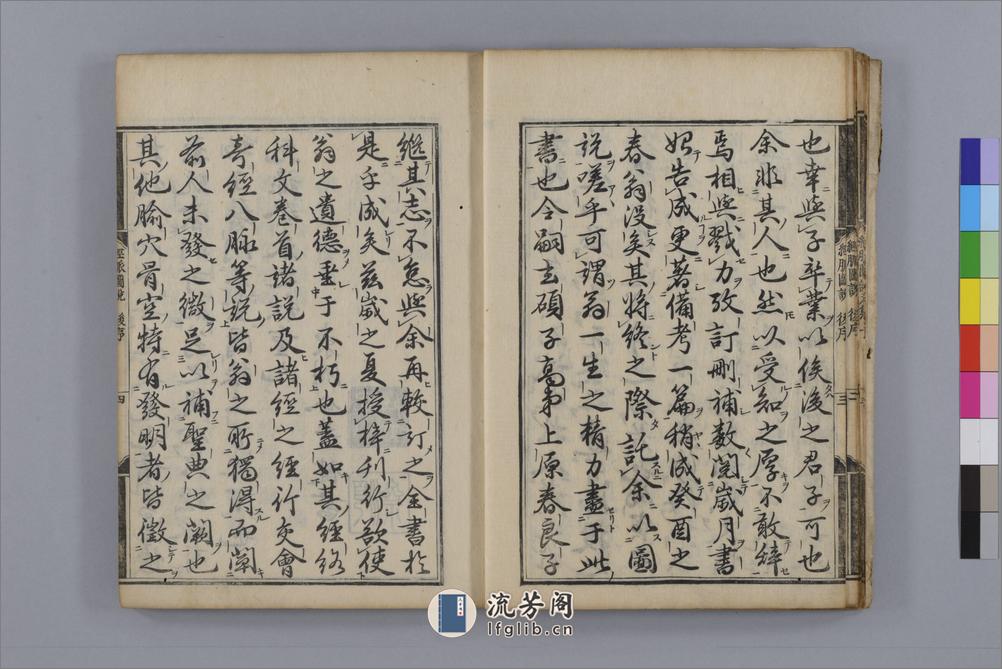 也幸與子卒業以俟後之君子可也
余非其人也然以受知之厚不敢辭
焉相與戮力攷訂刪補数閲歲月書
始告成更著備考一篇稍成癸酉之
春翁没矣其將終之際託余以圖
説嗟乎可謂翁一生之精力盡于此
書也今嗣玄碩子高弟上原春良子
継其志不怠與余再較訂之全書於
是乎成矣茲歲之夏授梓刊行欲使
翁之遺德垂于不朽也蓋如其經絡
科文卷首諸説及諸經之經行交會
奇經八脉等説皆翁之所獨得而闡
前人未發之微足以補聖典之闕也
其他腧穴骨空特有發明者皆徵之
經脈圖説 後序 三
經脈圖説 後序 四
流芳阁
lfglib.cn